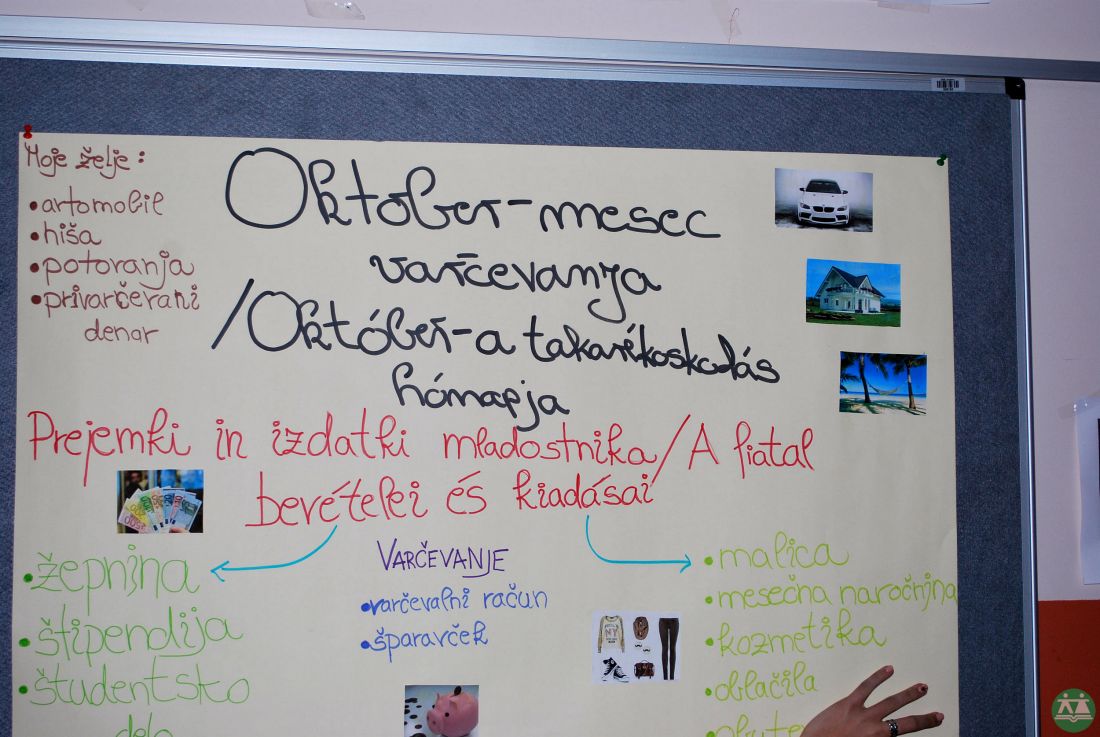 Moje želje:
•avtomobil
•hiša
•potovanja
•privarčevani
denar
Október-mesec
varčevanja
/Október-a takarékoskodás
hónapja
Prejemki in izdatki mladostnika/A fiatal
bevételei és kiadásai
•žepnina
•štipendija
•študentsko
delo
VARČEVANJE
•varčevalni račun
•šparavček
•malica
•mesečna naročnina
•kozmetika
•oblačila